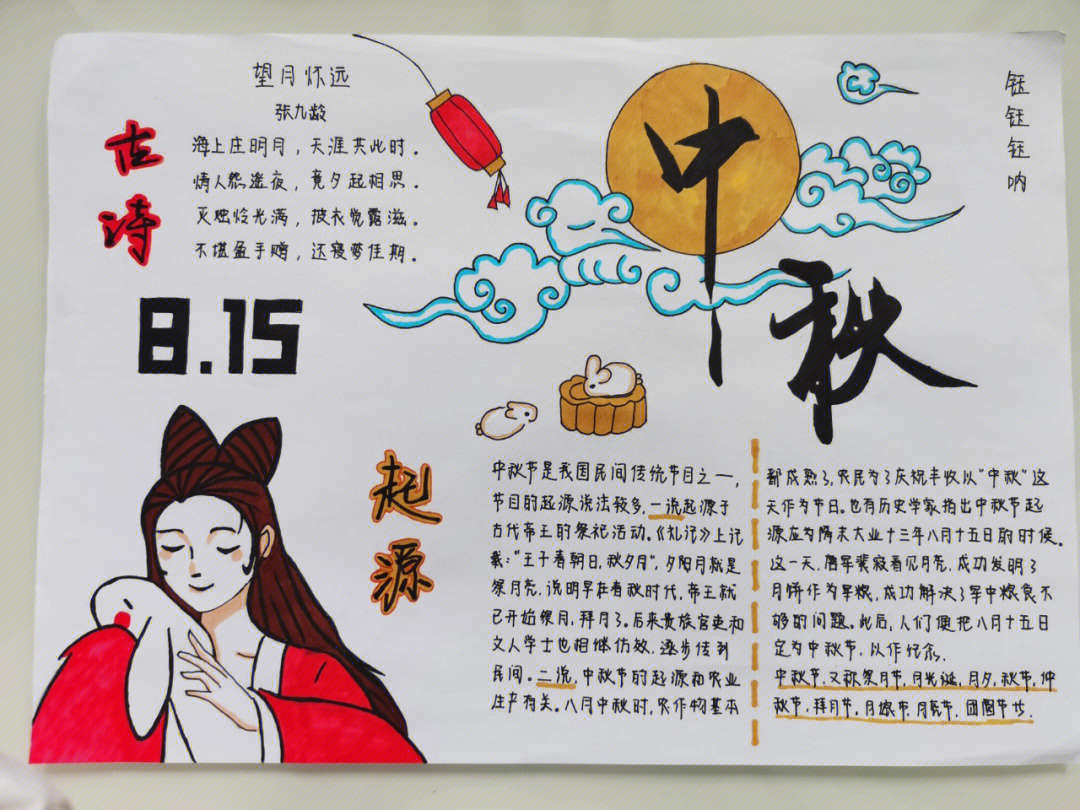 古诗
望月怀远
张九龄
海上庄明月，天涯共此时。
情人怨遥夜，竟夕起相思。
灭烛怜光满，披衣觉露滋。
不堪盈手赠，还寝梦佳期。
8.15
中秋
钰钰钰呐
起源
中秋节是我国民间传统节目之一，
节目的起源说法较多，一说起源于
古代帝王的祭祀活动。《礼记》上记
载："王子春朝日，秋夕月"，夕阳月就是
祭月亮，说明早在春秋时代，帝王就
已开始祭月，拜月了。后来贵族官吏和
文人学士也相继仿效，逐步传到
民间。二说，中秋节的起源和农业
生产有关。八月中秋时，农作物基本
都成熟了，农民为了庆祝丰收以"中秋"这
天作为节日。也有历史学家指出中秋节起
源应为隋末大业十三年八月十五日的时候。
这一天，唐军裴寂看见月亮，成功发明了
月饼作为军粮，成功解决了军中粮食不
够的问题。此后，人们便把八月十五日
定为中秋节，以作纪念。
中秋节，又称祭月节，月光诞，月夕，秋节，仲
秋节，拜月节，月娘节，月亮节，团圆节